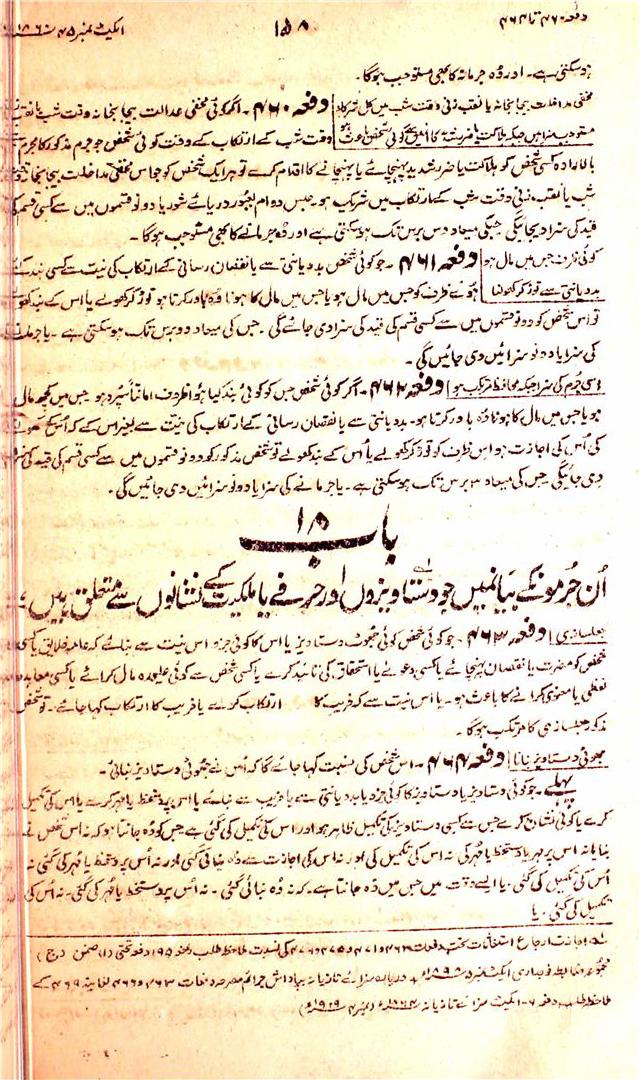 دفعہ ۴۶۰ تا ۴۶۴
۱۵۸
ایکٹ نمبر ۴۵ سنہ ۱۸۶۰ء
ہوسکتی ہے۔ اور وُہ جرمانہ کا بھی مستوجب ہوگا۔
مخفی مداخلت بیجا بخانہ یا نقب زنی وقت شب میں کل شرکاء
مستوجب سزا ہیں جبکہ ہلاکت یا ضرر شدید کا اُن میں کوئی شخص باعث ہو
دفعہ ۴۶۰۔ اگر کوئی مخفی عدالت بیجا بخانہ وقت شب یا نقب
وقت شب کے ارتکاب کے وقت کوئی شخص جو جرم مذکور کا مجرم
بالارادہ کسی شخص کو ہلاکت یا ضرر شدید پہنچائے یا پہنچانے کا اقدام کرے تو ہر ایک شخص کو جو اس مخفی مداخلت بیجا بخانہ وقت
شب یا نقب زنی وقت شب کے ارتکاب میں شریک ہو۔ حبس دوام بعبور دریائے شور یا دونو قسموں میں سے کسی قسم کی
قید کی سزا دیجائیگی جسکی میعاد دس برس تک ہوسکتی ہے اور وُہ جرمانے کا بھی مستوجب ہوگا۔
کوئی ظرف جس میں مال ہو
بددیانتی سے توڑ کر کھولنا
دفعہ ۴۶۱۔ جو کوئی شخص بددیانتی سے یا نقصان رسانی کے ارتکاب کی نیت سے کسی بند کئے
ہوئے ظرف کو جس میں مال ہو یا جس میں مال کا ہونا وُہ باور کرتا ہو توڑ کر کھولے یا اس کے بند کھولے
تو اُس شخص کو دونو قسموں میں سے کسی قسم کی قید کی سزا دی جائے گی۔ جس کی میعاد دو برس تک ہوسکتی ہے۔ یا جرمانے
کی سزا یا دونو سزائیں دی جائیں گی۔
اسی جُرم کی سزا جبکہ محافظ مرتکب ہو
دفعہ ۴۶۲۔ اگر کوئی شخص جس کو کوئی بند کیا ہوا ظرف امانتاً سپرد ہو جس میں کچھ مال
ہو یا جس میں مال کا ہونا وُہ باور کرتا ہو۔ بددیانتی سے یا نقصان رسانی کے ارتکاب کی نیت سے بغیر اس کے کہ اُسے کھولنے
کی اُس کی اجازت ہو اس ظرف کو توڑ کر کھولے یا اُس کے بند کھولے تو شخص مذکور کو دونو قسموں میں سے کسی قسم کی قید کی سزا
دی جائیگی جس کی میعاد ۳ برس تک ہوسکتی ہے۔ یا جرمانے کی سزا یا دونو سزائیں دی جائیں گی۔
باب ۱۸
اُن جُرمونکے بیانمیں جو دستاویزوں اور حرفے یا ملکیت کے نشانوں سے متعلق ہیں۔
جعلسازی
دفعہ ۴۶۳۔ جو کوئی شخص کوئی جھوٹ دستاویز یا اس کا کوئی جزو اس نیت سے بنائے کہ عامہ خلایق یا کسی
شخص کو مضرت یا نقصان پہنچائے یا کسی دعوے یا استحقاق کی تائید کرے یا کسی شخص سے کوئی علیحدہ مال کرائے یا کسی معاہدہ
لفظی یا معنوی کرانے کا باعث ہو۔ یا اس نیت سے کہ فریب کا ارتکاب کرے یا فریب کا ارتکاب کیا جائے۔ تو شخص
مذکور جعلسازی کا مرتکب ہوگا۔
جھوٹی دستاویز بنانا
دفعہ ۴۶۴۔ اس شخص کی نسبت کہا جائے گا کہ اُس نے جھوٹی دستاویز بنائی۔
پہلے۔ جو کوئی دستاویز یا دستاویز کا کوئی جزو یا بددیانتی سے یا فریب سے بنائے یا اس پر دستخط یا مُہر کرے یا اس کی تکمیل
کرے یا کوئی نشان کرے جس سے کسی دستاویز کی تکمیل ظاہر ہو اور اس کی تکمیل کی گئی ہے جس کو وُہ جانتا ہو کہ نہ اس شخص نے
بنایا نہ اس پر مہر یا دستخط یا مُہر کی نہ اس کی تکمیل کی اور نہ اس کی اجازت سے وُہ بنائی گئی اور نہ اُس پر دستخط یا مُہر کی گئی نہ
اُس کی تکمیل کی گئی۔ یا ایسے وقت میں جس میں وُہ جانتا ہے۔ کہ نہ وُہ بنائی گئی۔ نہ اُس پر دستخط یا مُہر کی گئی۔ نہ اُس کی
تکمیل کی گئی۔ یا
اجازت ارجاع استغاثات تحت دفعات ۴۶۳ و ۴۷۱ و ۴۷۵ و ۴۷۶ کی نسبت ملاحظہ طلب دفعہ ۱۹۵ دفعہ تحتی (۱) ضمن (ج)
مجموعہ ضابطہ فوجداری ایکٹ نمبر ۵ ۱۸۹۸ء + دربارہ سزائے تازیانہ بپاداش جرائم مصرحہ دفعات ۴۶۳ و ۴۶۶ لغایتہ ۴۶۹ کے
ملاحظہ طلب دفعہ ۶۔ ایکٹ سزائے تازیانہ